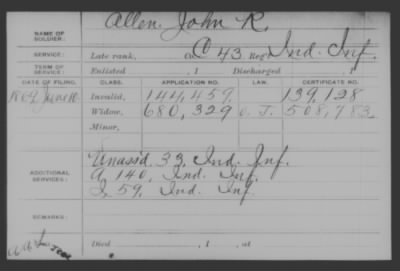 Allen, John R.
NAME OF SOLDIER:
SERVICE: Late rank, Co. C 43 Reg't Ind. Inf.
TERM OF SERVICE: Enlisted , 1 Discharged , 1
DATE OF FILING. CLASS. APPLICATION NO. LAW. CERTIFICATE NO.
1869 June 10 Invalid, 144,459. 139,128
Widow, 680,329 508,783
Minor,
ADDITIONAL SERVICES: Unass'd. 33, Ind. Inf.
A 140, Ind. Inf.
59, Ind. Inf.
REMARKS:
Died , 1 , at